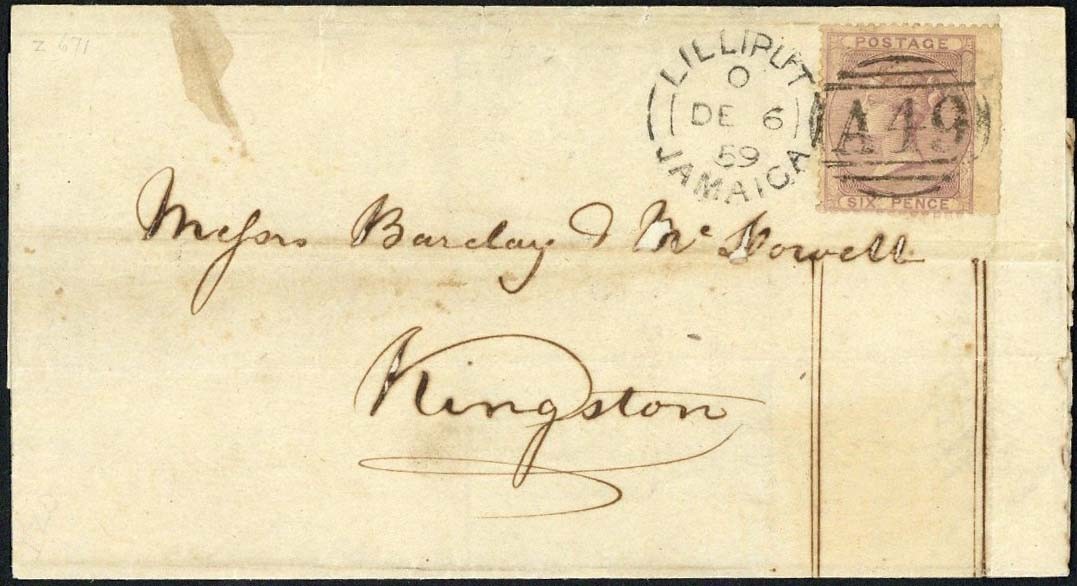 z 671
LILLIPUT
O
DE 6
59
JAMAICA
POSTAGE
A49
SIX PENCE
Messrs Barclay & Mc Dowell
Kingston